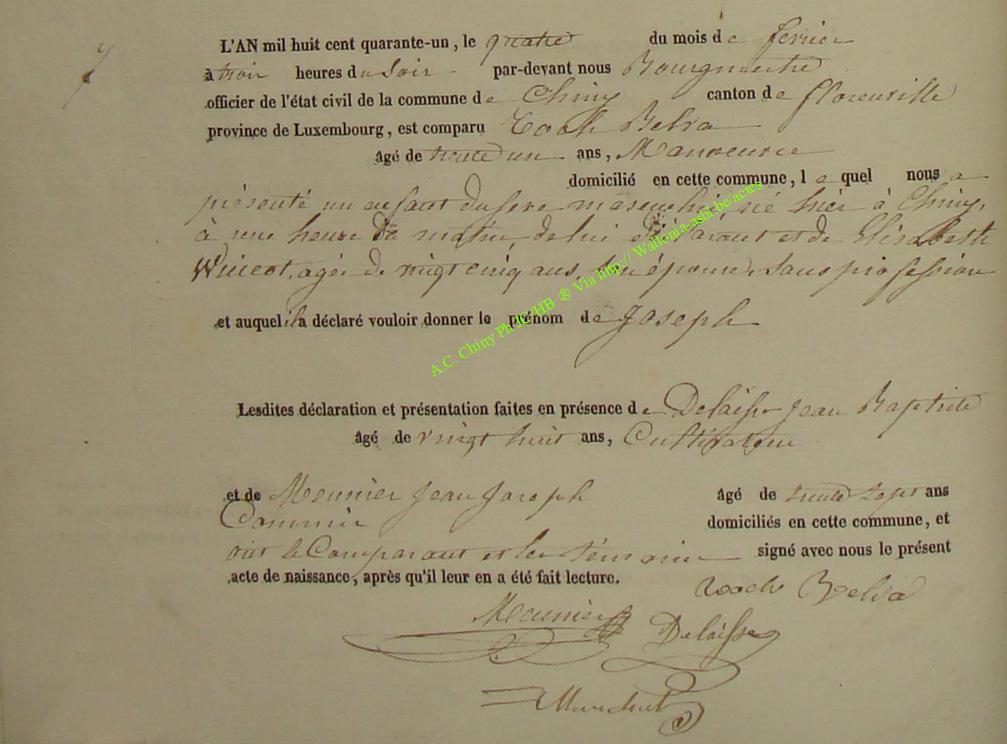 7
L'AN mil huit cent quarante-un, le quatre du mois de fevrier
à trois heures du Soir par-devant nous Bourgmestre
officier de l'état civil de la commune de Chiny canton de florenville
province de Luxembourg, est comparu Roch Belva
âgé de trente un ans, Manoeuvre
domicilié en cette commune, lequel nous a
présenté un enfant du sexe masculin, né hier à Chiny,
à une heure du matin, de lui déclarant et de Elisabeth
Wincot, agée de vingt cinq ans, son épouse, sans profession
et auquel il a déclaré vouloir donner le prénom de Joseph
Lesdites déclaration et présentation faites en présence de Delaisse Jean Baptiste
âgé de vingt huit ans, Cultivateur
et de Meunier Jean Joseph âgé de trente sept ans
domiciliés en cette commune, et
ont le Comparant et les témoins signé avec nous le présent
acte de naissance, après qu'il leur en a été fait lecture.
roch Belva
Meunier Delaisse
A.C. Chiny Ph JC/HB ® Via http://Wallonia-asbl-be/actes